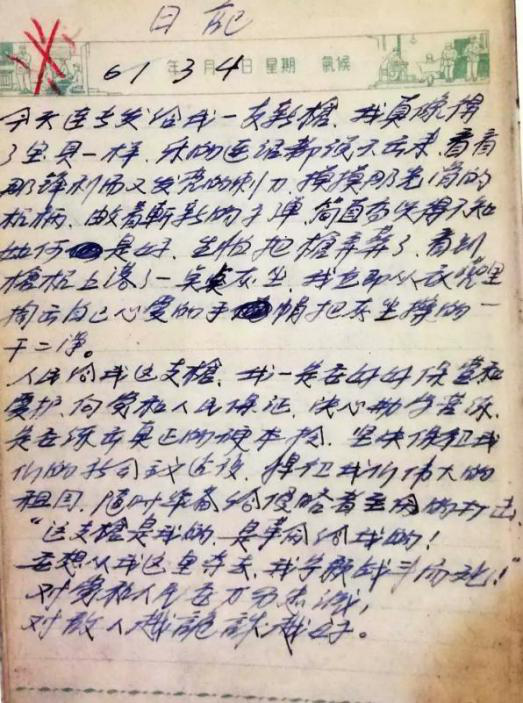 日记
61年3月4日 星期 氣候
今天连长发给我一支新槍，我真像得
了宝貝一样，乐的连话都说不出来，看看
那锋利而又发亮的刺刀，摸摸那光滑的
机柄，数着斬新的子弹，简直高兴得不知
如何是好，生怕把槍弄葬了，看到
槍机上落了一点灰尘，我立即从衣袋里
掏出自己心爱的手帕把灰尘擦的一
干二净。
人民向我这支槍，我一定要好好保管和
爱护，向党和人民保证，决心勤学苦练，
定要练出真正的硬本领，坚决保卫我
们的社会主义建设，捍卫我们伟大的
祖国，随时准备给侵略者主民的打击
“这支槍是我的，是革命给我的！
要想从我这里夺去，我宁愿战斗而死！”
对党和人民要万分忠诚，
对敌人越詭詐越好。